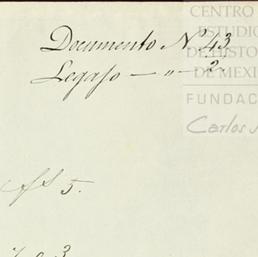 Documento N° 43
Legajo — " — 2.
CENTRO
ESTUDIO
DE HISTO
DE MEXI
FUNDAC
Carlos
ff 5.